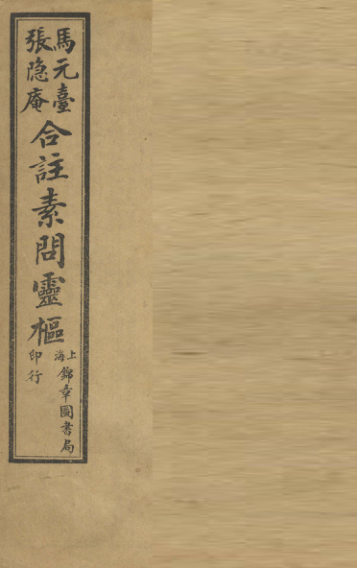 馬元臺
張隐庵
合註素問靈樞
上海
錦章圖書局
印行